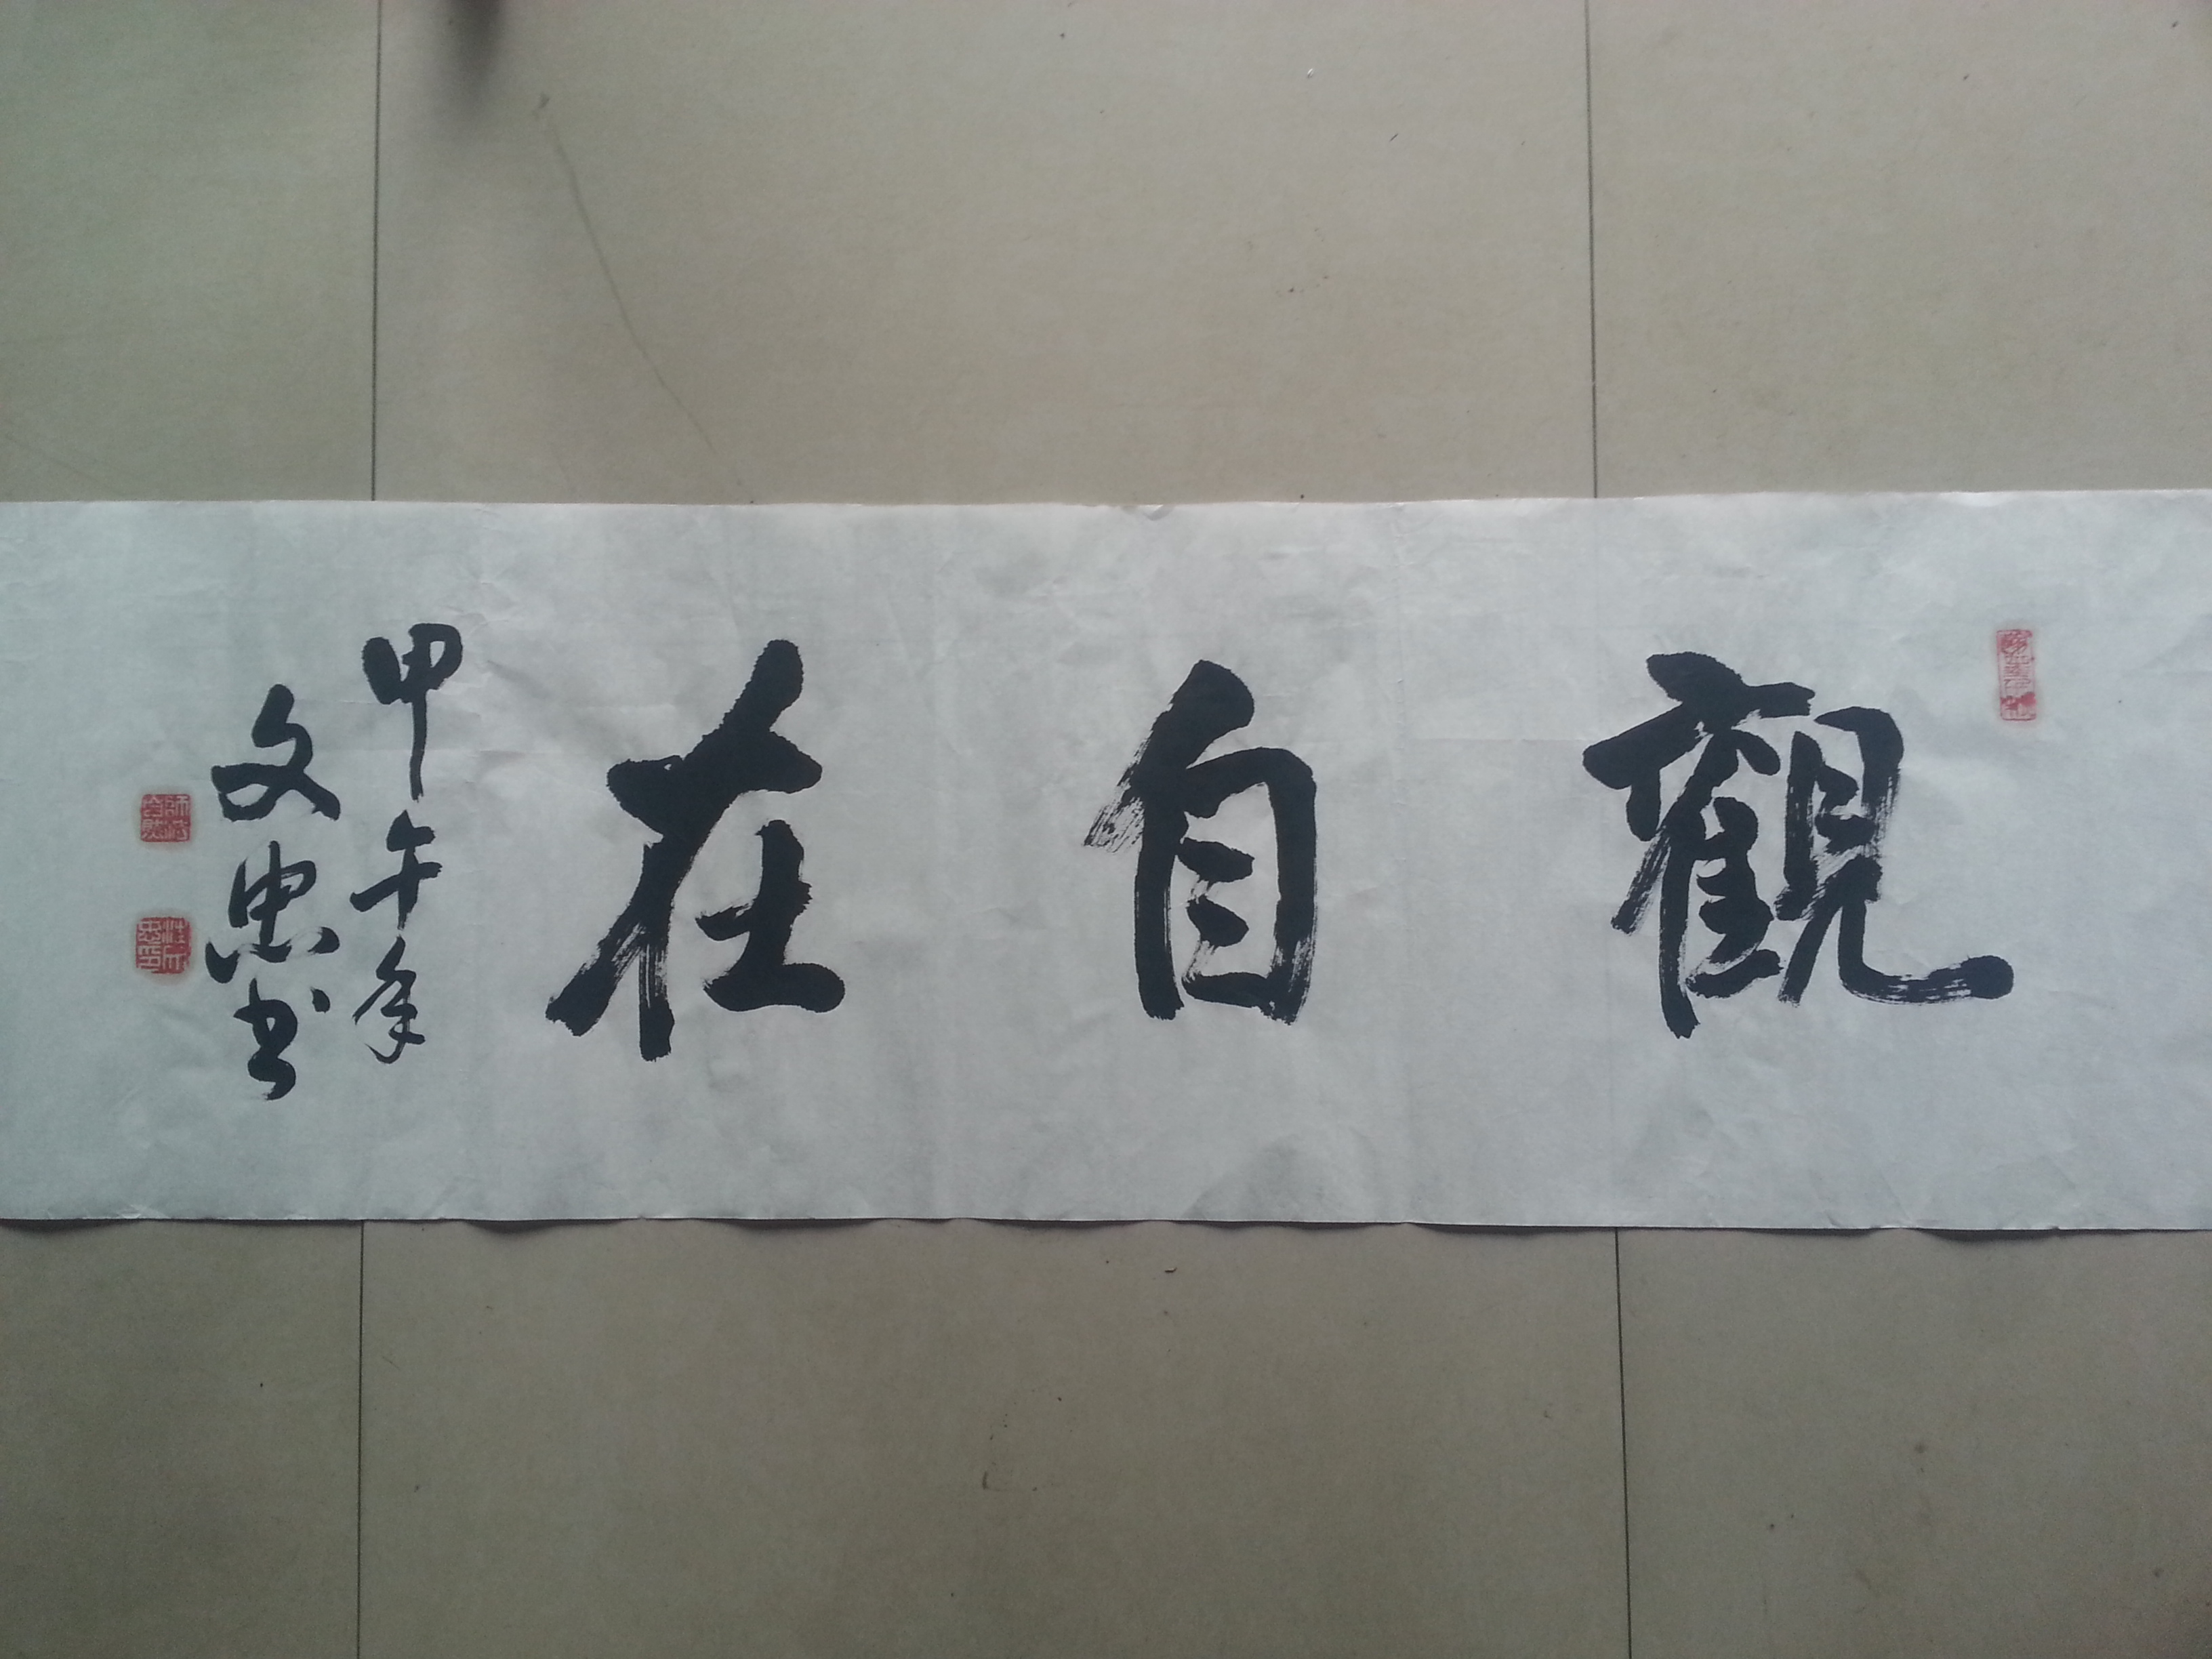 觀自在
甲午年
文忠书